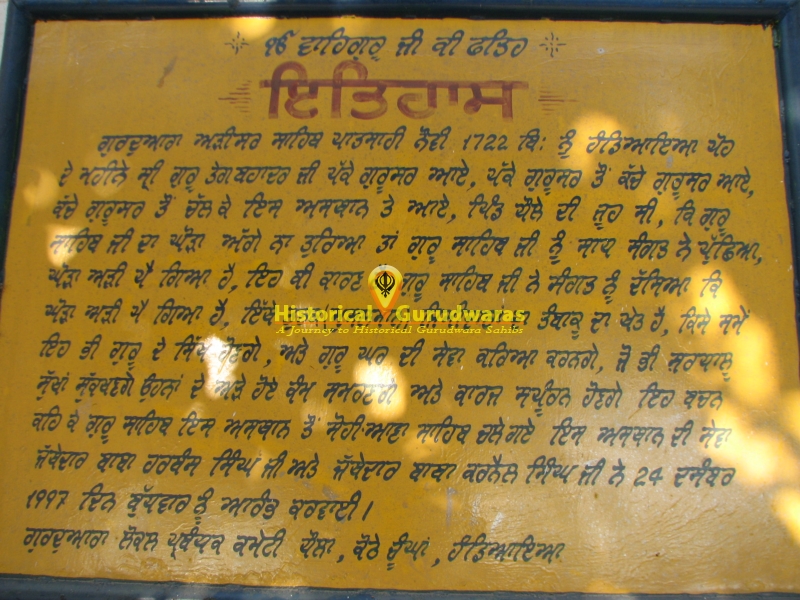 ੴ ਵਾਹਿਗੁਰੂ ਜੀ ਕੀ ਫਤਿਹ
ਇਤਿਹਾਸ
ਗੁਰਦੁਆਰਾ ਅੜੀਸਰ ਸਾਹਿਬ ਪਾਤਸਾਹੀ ਨੌਵੀ 1722 ਬਿ: ਨੂੰ ਹੰਡਿਆਇਆ ਪੋਹ
ਦੇ ਮਹੀਨੇ ਸ੍ਰੀ ਗੁਰੂ ਤੇਗ ਬਹਾਦਰ ਜੀ ਪੱਕੇ ਗੁਰੂਸਰ ਆਏ, ਪੱਕੇ ਗੁਰੂਸਰ ਤੋਂ ਕੱਚੇ ਗੁਰੂਸਰ ਆਏ,
ਕੱਚੇ ਗੁਰੂਸਰ ਤੋਂ ਚੱਲ ਕੇ ਇਸ ਅਸਥਾਨ ਤੇ ਆਏ, ਪਿੰਡ ਧੌਲੇ ਦੀ ਜੂਹ ਸੀ, ਕਿ ਗੁਰੂ
ਸਾਹਿਬ ਜੀ ਦਾ ਘੋੜਾ ਅੱਗੇ ਨਾ ਤੁਰਿਆ ਤਾਂ ਗੁਰੂ ਸਾਹਿਬ ਜੀ ਨੂੰ ਸਾਧ ਸੰਗਤ ਨੇ ਪੁੱਛਿਆ,
ਘੋੜਾ ਅੜੀ ਪੈ ਗਿਆ ਹੈ, ਇਹ ਕੀ ਕਾਰਣ ਗੁਰੂ ਸਾਹਿਬ ਜੀ ਨੇ ਸੰਗਤ ਨੂੰ ਦੱਸਿਆ ਕਿ
ਘੋੜਾ ਅੜੀ ਪੈ ਗਿਆ ਹੈ, ਤੰਬਾਕੂ ਦਾ ਖੇਤ ਹੈ, ਕਿਸੇ ਸਮੇਂ
ਇਹ ਭੀ ਗੁਰੂ ਦੇ ਸਿੱਖ ਹੋਣਗੇ, ਅਤੇ ਗੁਰੂ ਘਰ ਦੀ ਸੇਵਾ ਕਰਿਆ ਕਰਨਗੇ, ਜੋ ਭੀ ਸ਼ਰਧਾਲੂ
ਸੁੱਖਾਂ ਸੁੱਖਣਗੇ ਉਹਨਾਂ ਦੇ ਅੜੇ ਹੋਏ ਕੰਮ ਸਮਰਣਗੇ ਅਤੇ ਕਾਰਜ ਸਪੂੰਰਨ ਹੋਣਗੇ ਇਹ ਬਚਨ
ਕਹਿ ਕੇ ਗੁਰੂ ਸਾਹਿਬ ਇਸ ਅਸਥਾਨ ਤੋਂ ਸੋਹੀਆਣਾ ਸਾਹਿਬ ਚਲੇ ਗਏ ਇਸ ਅਸਥਾਨ ਦੀ ਸੇਵਾ
ਜੱਥੇਦਾਰ ਬਾਬਾ ਹਰਬੰਸ ਸਿੰਘ ਜੀ ਅਤੇ ਜੱਥੇਦਾਰ ਬਾਬਾ ਕਰਨੈਲ ਸਿੰਘ ਜੀ ਨੇ 24 ਦਸੰਬਰ
1997 ਦਿਨ ਬੁੱਧਵਾਰ ਨੂੰ ਆਰੰਭ ਕਰਵਾਈ।
ਗੁਰਦੁਆਰਾ ਲੋਕਲ ਪ੍ਰਬੰਧਕ ਕਮੇਟੀ ਧੌਲਾ, ਕੋਠੇ ਚੂੰਘਾਂ, ਹੰਡਿਆਇਆ
Historical Gurudwaras
A Journey to Historical Gurudwara Sahibs